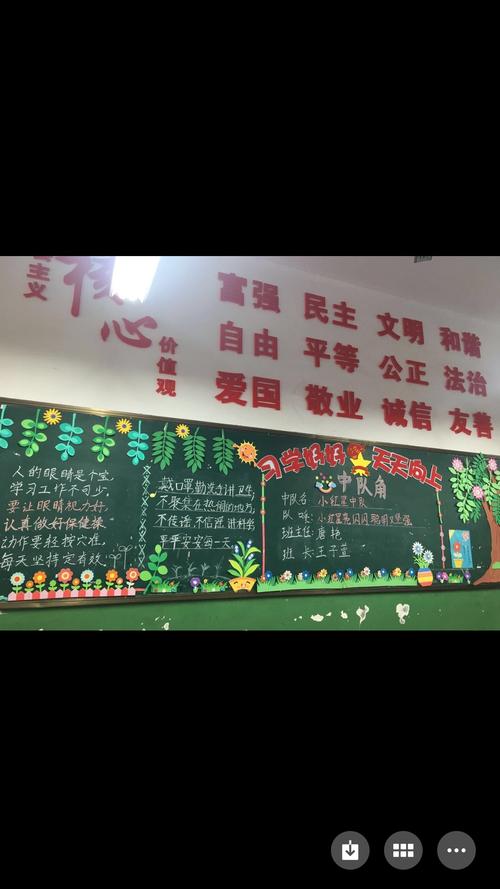 主义
核心
价值观
富强 民主 文明 和谐
自由 平等 公正 法治
爱国 敬业 诚信 友善
人的眼睛是个宝,
学习工作不可少,
要让眼睛视力好,
认真做好保健操
动作要轻揉穴准,
每天坚持定有效
戴口罩勤洗手讲卫生
不聚集在热闹的地方
不传谣不信谣讲科学
平平安安每一天
好好学习 天天向上
中队角
中队名: 小红星中队
队 小红星亮闪闪聪明又坚强
班主任: 唐艳
班 长: 王子萱